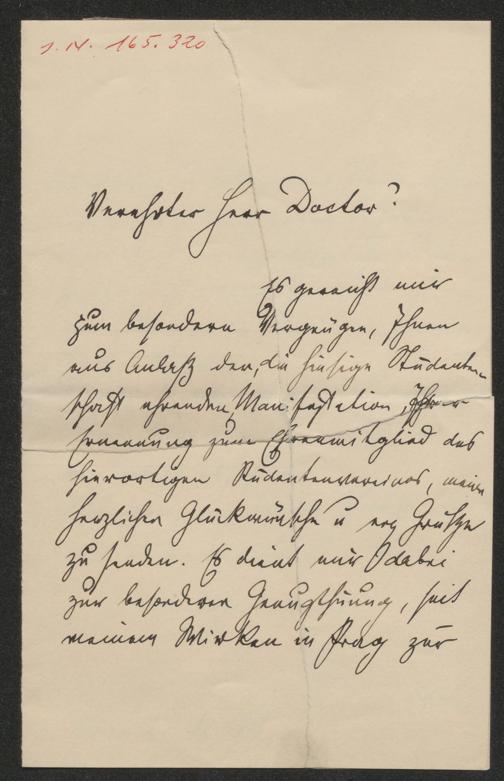 J. N. 165.320
Verehrter Herr Doctor!
Es gereicht mir
zum besondern Vergnügen, Ihnen
aus Anlaß der, die hiesige Studenten-
schaft ehrenden Manifestation, Ihrer
Ernennung zum Ehrenmitglied des
hierortigen Studentenvereines, meine
herzlichen Glückwünsche u Grüße
zu senden. Es dient mir dabei
zur besonderen Genugthuung, seit
meinem Wirken in Prag zur